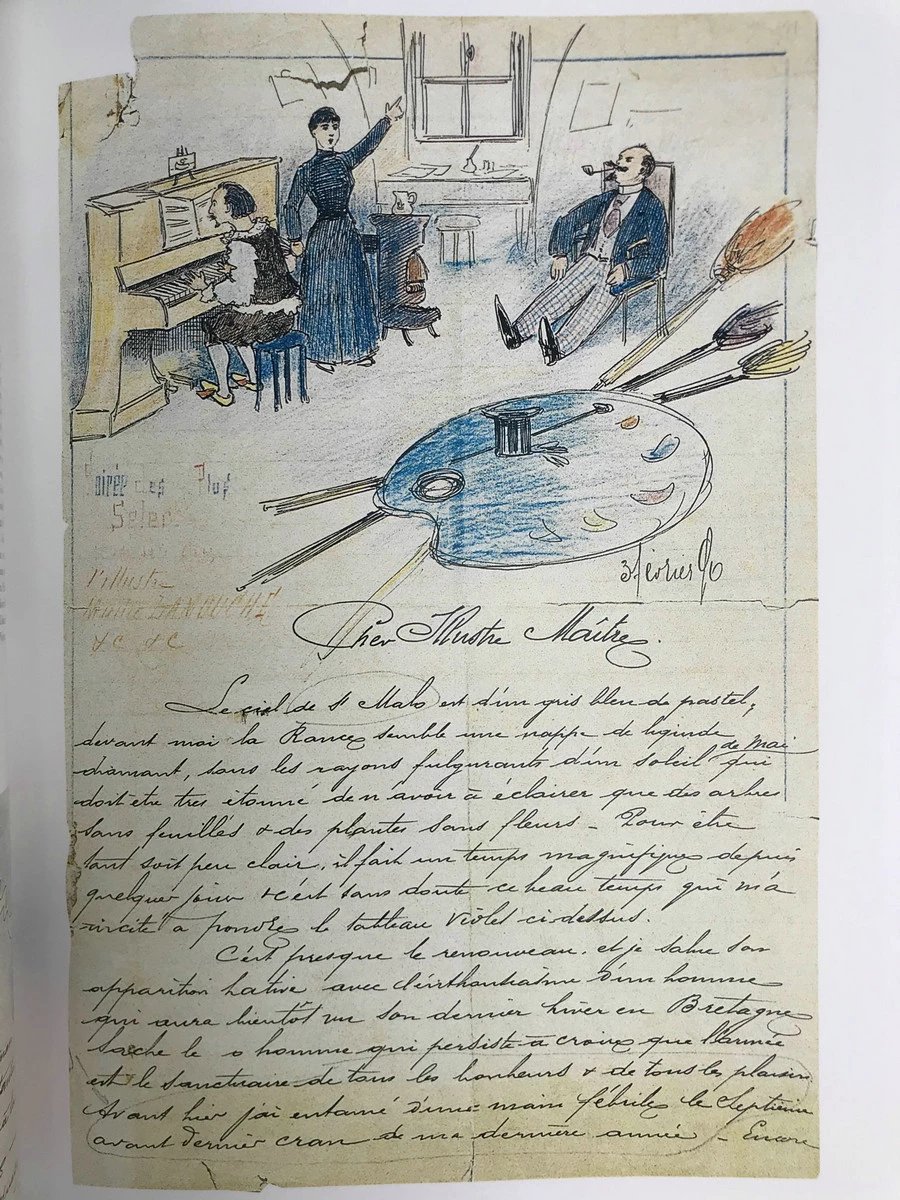 Soirée des Plus
Selec
l'illustre
&c &c
3 février 96
Cher Illustre Maître
Le ciel de St Malo est d'un gris bleu de pastel,
devant moi la Rance semble une nappe de liquide
de mai
diamant, sous les rayons fulgurants d'un soleil qui
doit être très étonné de n'avoir à éclairer que des arbres
sans feuilles & des plantes sans fleurs – Pour être
tant soit peu clair, il fait un temps magnifique depuis
quelques jours & c'est sans doute ce beau temps qui m'a
incité à pondre le tableau violet ci-dessus.
C'est presque le renouveau, et je salue son
apparition hative avec l'enthousiasme d'un homme
qui aura bientôt vu son dernier hiver en Bretagne
homme qui persiste à croire que l'armée
est le sanctuaire de tous les bonheurs & de tous les plaisirs
Avant hier j'ai entamé d'une main fébrile le Septième
avant dernier cran de ma dernière année – Encore